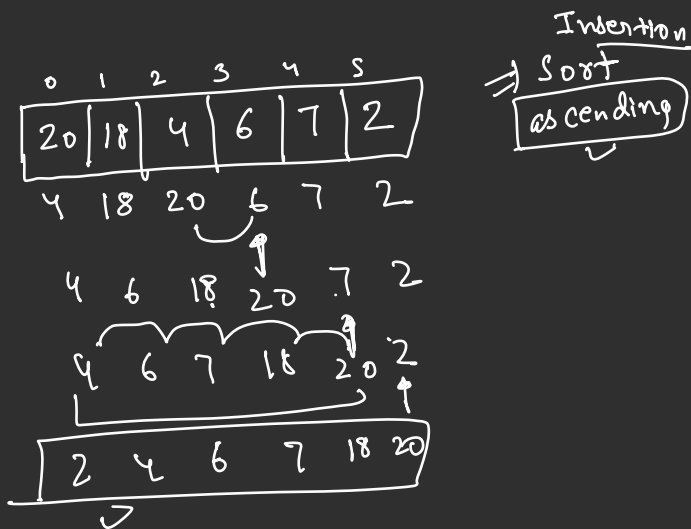 Insertion
Sort
ascending
0 1 2 3 4 5
20 18 4 6 7 2
4 18 20 6 7 2
4 6 18 20 7 2
4 6 7 18 20 2
2 4 6 7 18 20